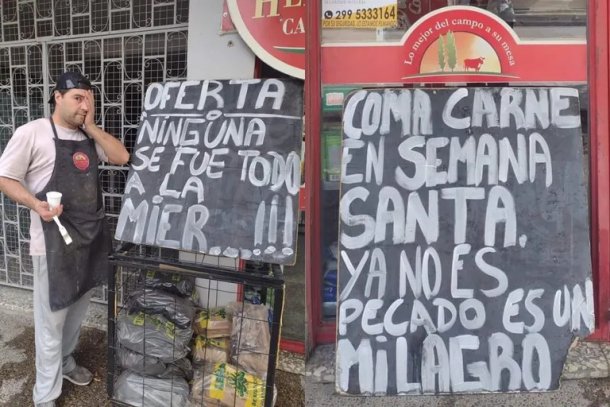 OFERTA
NINGUNA
SE FUE TODO
A LA
MIER...!!!
299 5333164
Lo mejor del campo a su mesa
COMA CARNE
EN SEMANA
SANTA.
YA NO ES
PECADO ES UN
MILAGRO